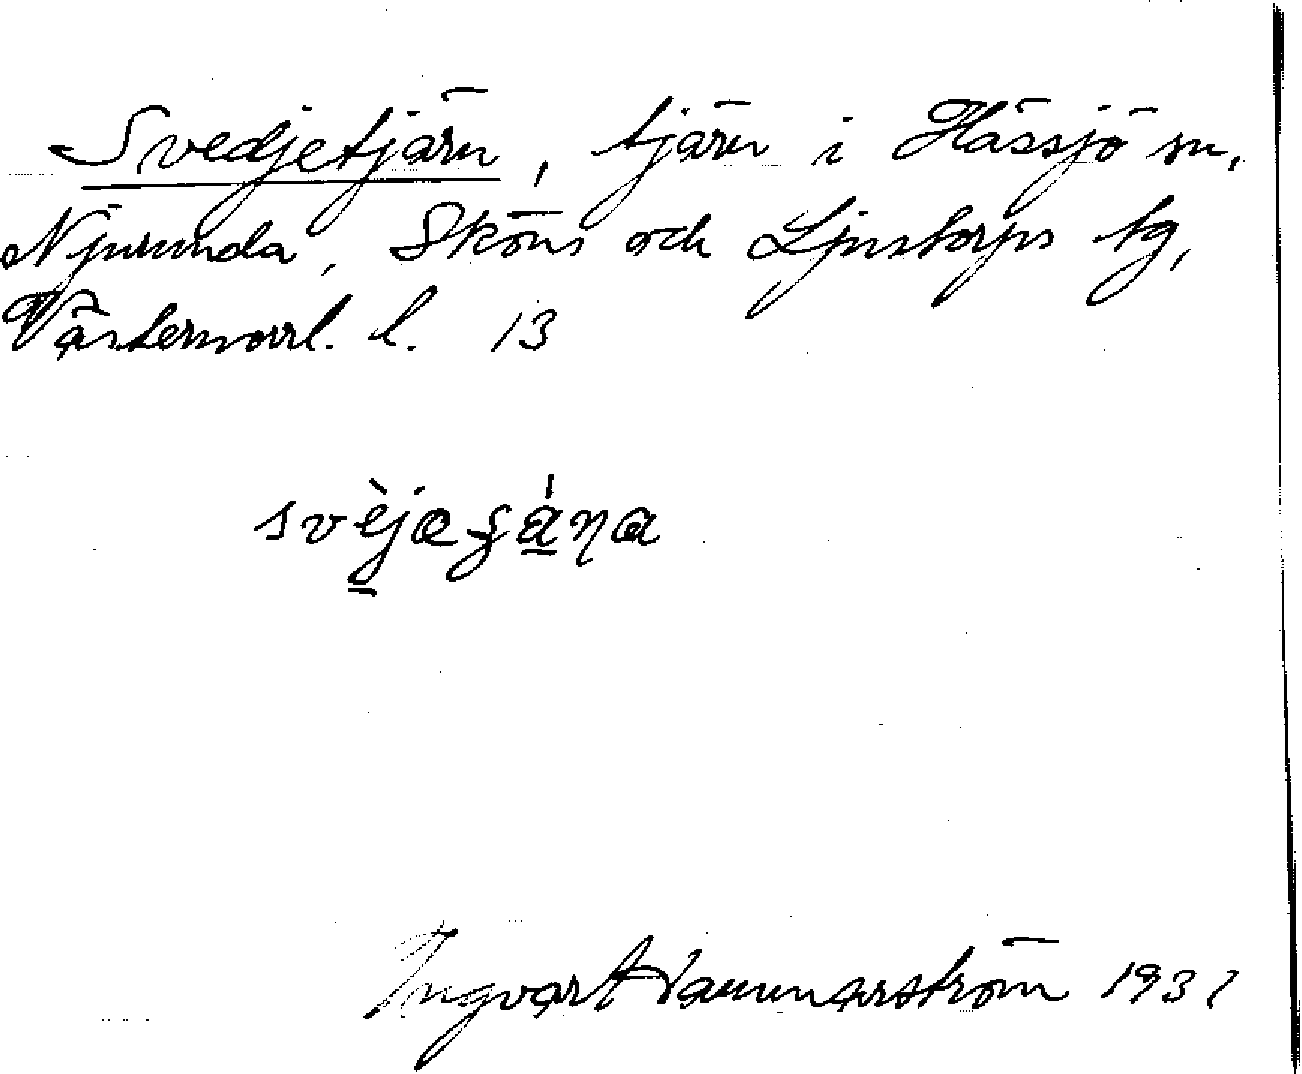 Svedjetjärn, tjärn i Hässjö sn,
Njurunda, Sköns och Ljustorps tg,
Västernorrl. l. 13
Ingvar Hammarström 1931